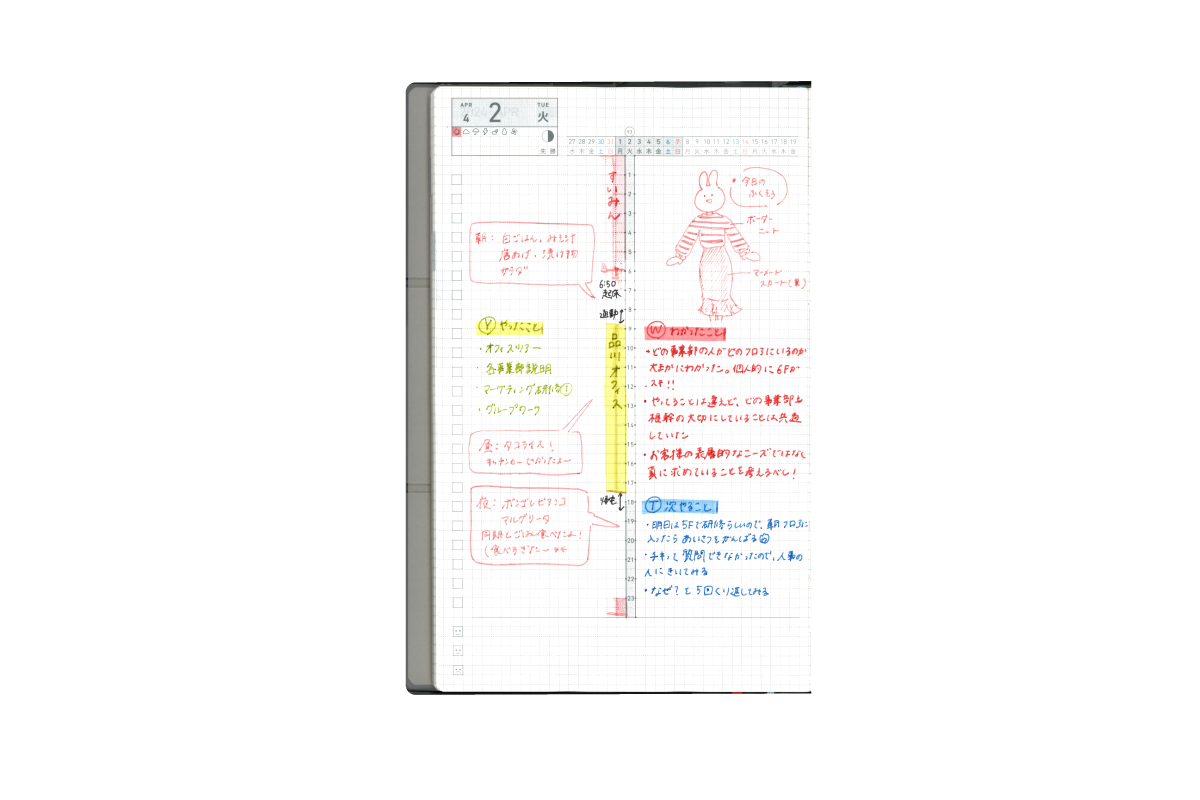 APR
4
2
TUE
火
先勝
93
27 28 29 30 31 1 2 3 4 5 6 7 8 9 10 11 12 13 14 15 16 17 18 19
水 木 金 土 日 月 火 水 木 金 土 日 月 火 水 木 金 土 日 月 火 水 木 金
1
2
3
4
5
6
7
8
9
10
11
12
13
14
15
16
17
18
19
20
21
22
23
すいみん
6:50
起床
通勤
品川オフィス
帰宅
朝：白ごはん、みそ汁
唐あげ、漬け物
サラダ
Y やったこと
・オフィスツアー
・各事業部説明
・マーケティング研修①
・グループワーク
昼：タコライス！
キッチンカー
夜：ボンゴレビアンコ
マルゲリータ
同期とごはん食べたよ！
（食べすぎた
今日の
ふくそう
ボーダー
ニット
マーメード
スカート（黒）
W わかったこと
・どの事業部の人がどのフロアにいるのか
大まかにわかった。個人的に6Fが
スキ!!
・やってることは違えど、どの事業部も
根幹の大切にしていることは共通
していた
・お客様の表層的なニーズではなく
真に求めていることを考えるべし！
T 次やること
・明日は5Fで研修らしいので、朝フロアに
入ったらあいさつをがんばる
・チキって質問できなかったので、人事の
人にきいてみる
・なぜ？を5回くり返してみる